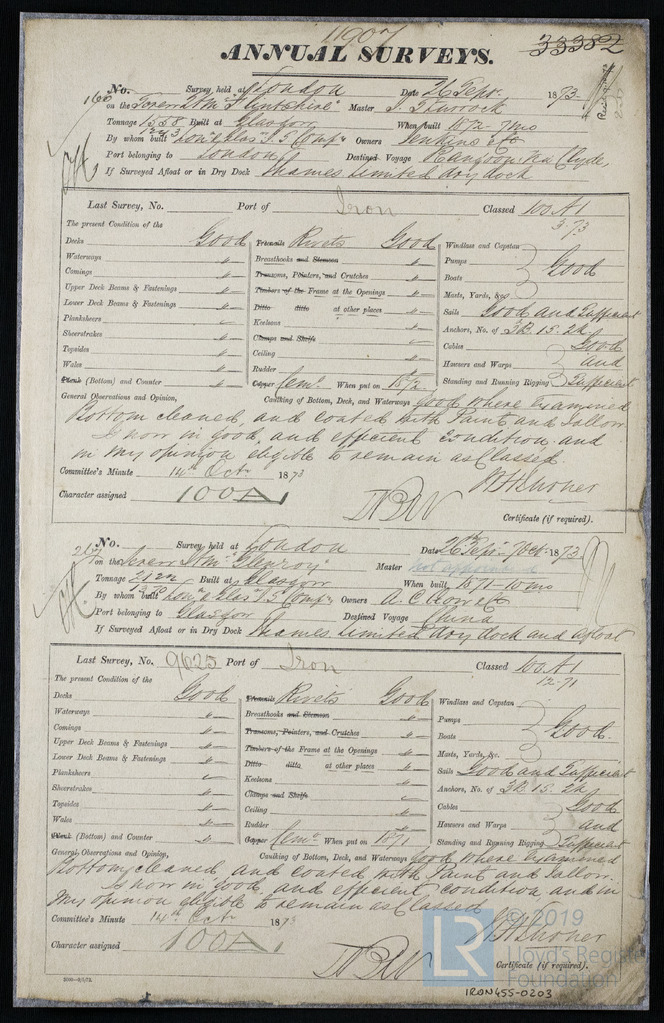 11907
33382
ANNUAL SURVEYS.
No. 166 Survey held at London Date 26 Sept. 1873
on the Screw Stmr "Flintshire" Master J.
Tonnage 1558 Built at Glasgow When built 1872 - 7mo
1243
By whom built Lon & Glas S.S. Compy Owners Jenkins & Co
Port belonging to London Destined Voyage Rangoon via Clyde
If Surveyed Afloat or in Dry Dock Thames Limited dry dock
Last Survey, No. Port of Iron Classed 100 A1
3.73
The present Condition of the
Decks Good
Waterways "
Comings "
Upper Deck Beams & Fastenings "
Lower Deck Beams & Fastenings "
Planksheers
Sheerstrakes "
Topsides "
Wales "
Plank (Bottom) and Counter "
Treenails Rivets Good
Breasthooks and Stemson "
Transoms, Pointers, and Crutches "
Timbers of the Frame at the Openings "
Ditto ditto at other places "
Keelsons "
Clamps and Shelfs
Ceiling "
Rudder "
Copper Cemt When put on 1872
Windlass and Capstan
Pumps
Boats Good
Masts, Yards, &c.
Sails Good and Sufficient
Anchors, No. of 3B. 1S. 2K
Cables Good
Hawsers and Warps and
Standing and Running Rigging Sufficient
General Observations and Opinion, Caulking of Bottom, Deck, and Waterways good where Examined
Bottom cleaned, and coated with Paint and Tallow.
Is now in good, and efficient condition and
in my opinion eligible to remain as Classed.
Committee's Minute 14th Oct 1873
Character assigned 100A1
Certificate (if required).
No. 267 Survey held at London Date 26th Sept - 7 Oct - 1873
on the Screw Stmr "Glenroy" Master not appointed
Tonnage 2122 Built at Glasgow When built 1871 - 10mo
1370
By whom built Lon & Glas S.S Compy Owners A. C. Gow & Co
Port belonging to Glasgow Destined Voyage China
If Surveyed Afloat or in Dry Dock Thames Limited dry dock and afloat
Last Survey, No. 9625 Port of Iron Classed 100 A1
12.71
The present Condition of the
Decks Good
Waterways "
Comings "
Upper Deck Beams & Fastenings "
Lower Deck Beams & Fastenings "
Planksheers
Sheerstrakes "
Topsides "
Wales "
Plank (Bottom) and Counter "
Treenails Rivets Good
Breasthooks and Stemson "
Transoms, Pointers, and Crutches "
Timbers of the Frame at the Openings "
Ditto ditto at other places "
Keelsons "
Clamps and Shelfs
Ceiling "
Rudder "
Copper Cemt When put on 1871
Windlass and Capstan
Pumps
Boats Good.
Masts, Yards, &c.
Sails Good and Sufficient
Anchors, No. of 3B. 1S. 2K
Cables Good
Hawsers and Warps and
Standing and Running Rigging Sufficient
General Observations and Opinion, Caulking of Bottom, Deck, and Waterways good where Examined
Bottom cleaned, and coated with Paint and Tallow.
Is now in good, and efficient condition, and in
my opinion eligible to remain as Classed
Committee's Minute 14th Oct 1873
Character assigned 100A1
Certificate (if required).
LR © 2019
Lloyd's Register
Foundation
IRON455-0203